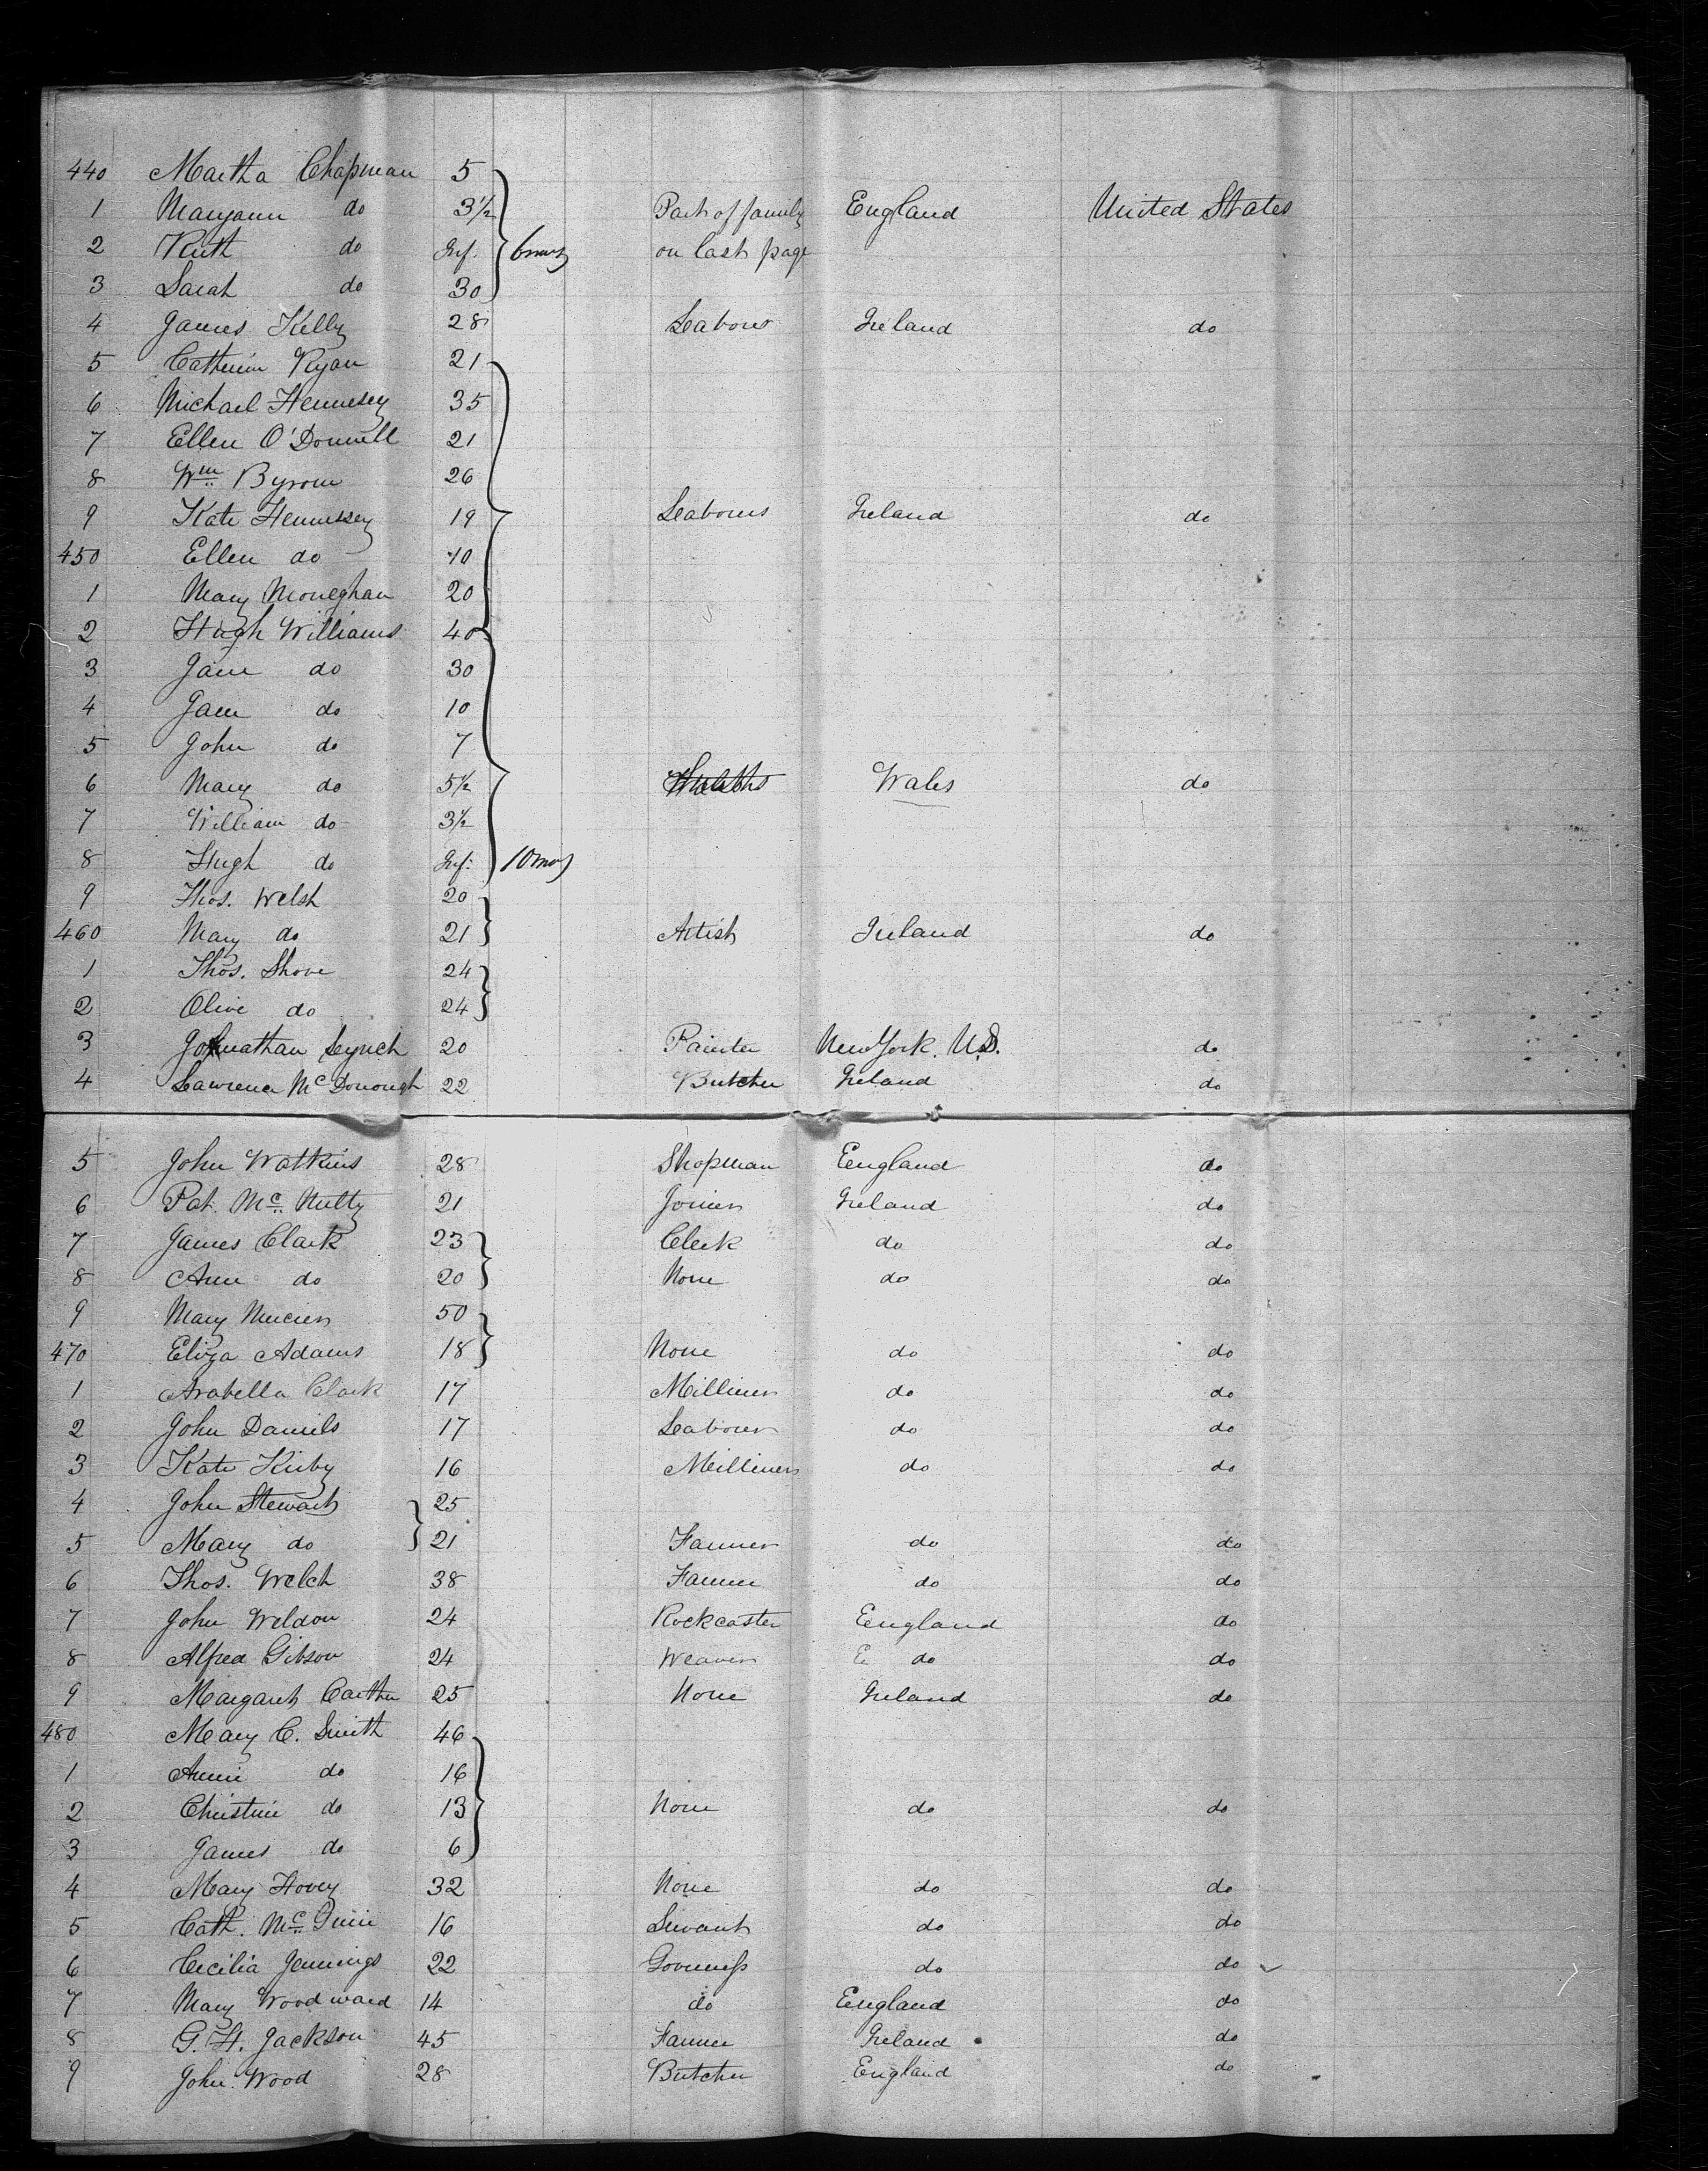 440 Martha Chapman 5
1 Maryann do 3½ Part of family England United States
2 Ruth do Inf. 6 mos on last page
3 Sarah do 30
4 James Kelly 28 Labour Ireland do
5 Catherin Ryan 21
6 Michael Hennesey 35
7 Ellen O'Donnell 21
8 Wm Byrom 26
9 Kate Hennessey 19 Labours Ireland do
450 Ellen do 10
1 Mary Moneghan 20
2 Hugh Williams 40
3 Jane do 30
4 Jane do 10
5 John do 7
6 Mary do 5½ Wales do
7 William do 3½
8 Hugh do Inf. 10 mos
9 Thos. Welsh 20
460 Mary do 21 Artist Ireland do
1 Thos. Shove 24
2 Olive do 24
3 Johnathan Lynch 20 Painter New York. U.S. do
4 Lawrence McDonough 22 Butcher Ireland do
5 John Watkins 28 Shopman England do
6 Pat. Mc Nulty 21 Joiner Ireland do
7 James Clark 23 Clerk do do
8 Ann do 20 None do do
9 Mary 50
470 Eliza Adams 18 None do do
1 Arabella Clark 17 Milliner do do
2 John Daniels 17 Labourer do do
3 Kate Kirby 16 Milliner do do
4 John Stewart 25
5 Mary do 21 Farmer do do
6 Thos. Welch 38 Farmer do do
7 John Weldon 24 England do
8 Alfred Gibson 24 Weaver E do do
9 Margaret Carthe 25 None Ireland do
480 Mary C. Smith 46
1 Annie do 16
2 Christine do 13 None do do
3 James do 6
4 Mary Hovey 32 None do do
5 Cath. Mc Guire 16 Servant do do
6 Cecilia Jennings 22 Governess do do
7 Mary Woodward 14 do England do
8 G. H. Jackson 45 Farmer Ireland do
9 John Wood 28 Butcher England do